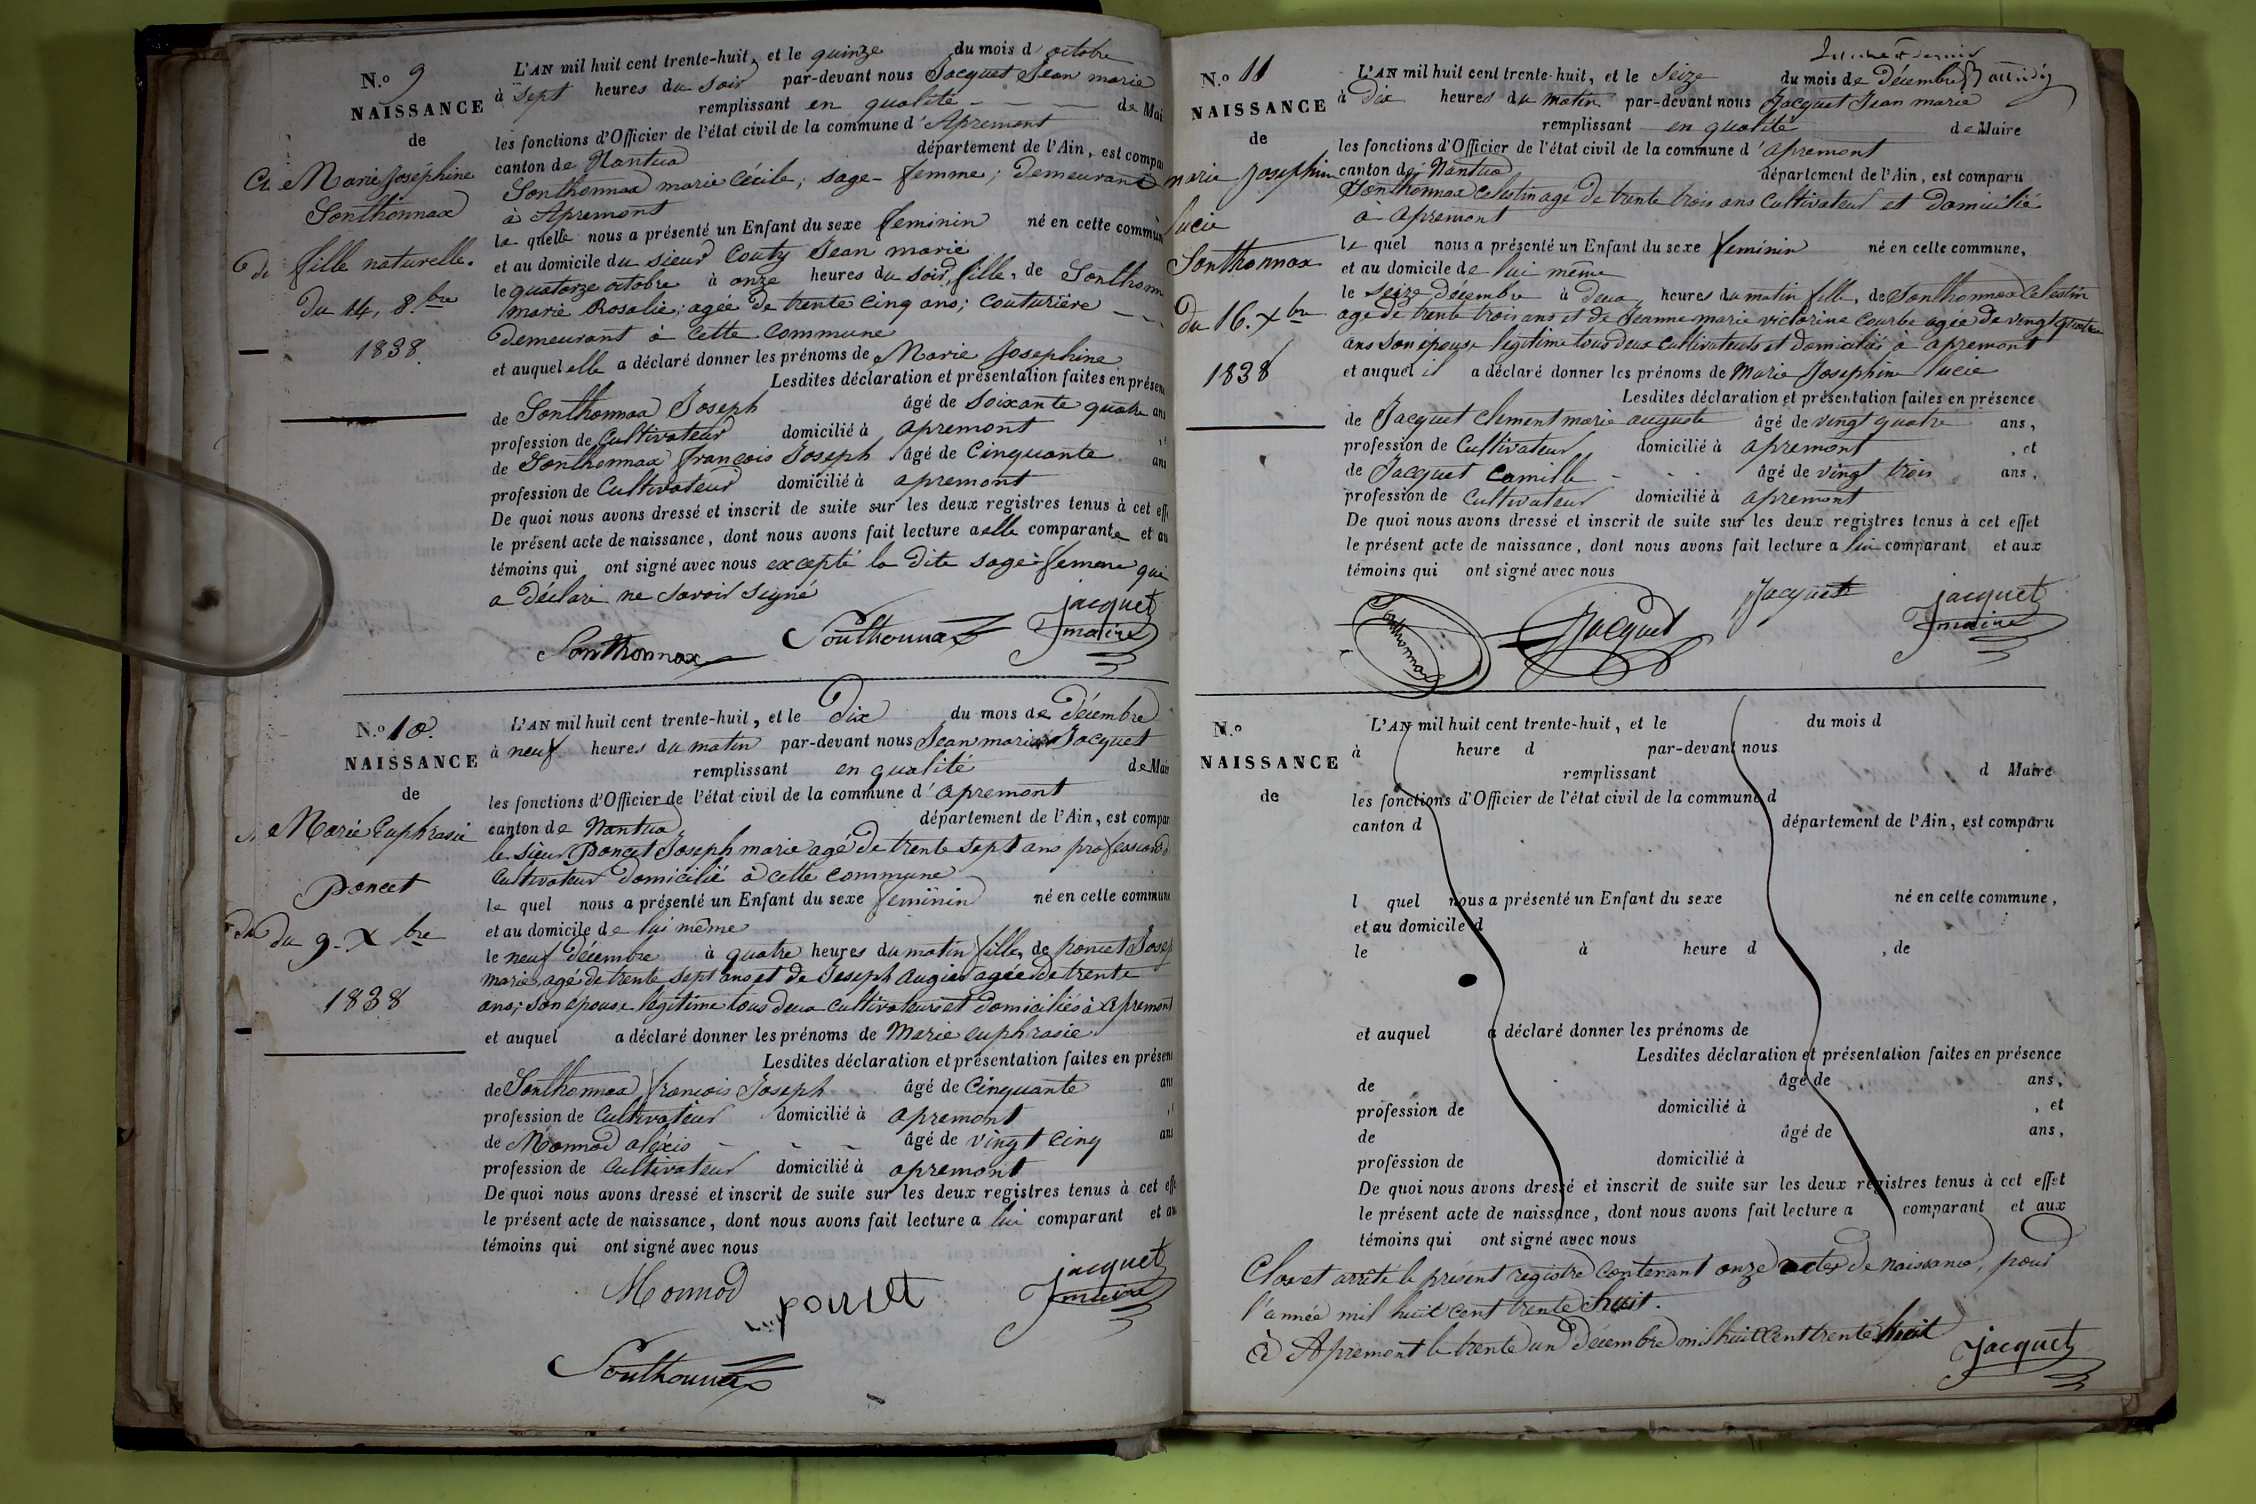 N.o 9
NAISSANCE
de
Marie Joséphine
Sonthonnax
fille naturelle.
Du 14, 8.bre
1838.
L'AN mil huit cent trente-huit, et le quinze du mois d'octobre
à sept heures du soir par-devant nous Jacquet Jean marie
remplissant en qualité de Mai
les fonctions d'Officier de l'état civil de la commune d'Apremont
canton de Nantua département de l'Ain, est compa
Sonthonnax marie Cécile; sage-femme; demeurant
à Apremont
la quelle nous a présenté un Enfant du sexe feminin né en cette commun
et au domicile du sieur Couty Jean marie
le quatorze octobre à onze heures du soir, fille, de Sonthonn
marie Rosalie; agée de trente cinq ans; couturière
demeurant à cette commune
et auquel elle a déclaré donner les prénoms de Marie Josephine
Lesdites déclaration et présentation faites en présen
de Sonthonnax Joseph âgé de soixante quatre ans
profession de Cultivateur domicilié à apremont
de Sonthonnax françois Joseph âgé de Cinquante ans
profession de Cultivateur domicilié à apremont
De quoi nous avons dressé et inscrit de suite sur les deux registres tenus à cet eff
le présent acte de naissance, dont nous avons fait lecture a elle comparante et au
témoins qui ont signé avec nous excepté la dite sage-femme qui
a déclaré ne savoir signé
Sonthonnax Sonthonnax jacquet
maire
N.o 10.
NAISSANCE
de
Marie Euphrasie
Poncet
du 9. Xbre
1838
L'AN mil huit cent trente-huit, et le Dix du mois de Décembre
à neuf heures du matin par-devant nous Jean marie Jacquet
remplissant en qualité de Mai
les fonctions d'Officier de l'état civil de la commune d'apremont
canton de Nantua département de l'Ain, est compar
le sieur Poncet Joseph marie agé de trente sept ans profession d
Cultivateur domicilié à cette commune
le quel nous a présenté un Enfant du sexe feminin né en cette commune
et au domicile de lui même
le neuf décembre à quatre heures du matin fille, de poncet Josep
marie, agé de trente sept ans et de Joseph augier agée de trente
ans; son epouse legitime tous deux cultivateurs et domiciliés à apremont
et auquel a déclaré donner les prénoms de Marie euphrasie
Lesdites déclaration et présentation faites en présen
de Sonthonnax françois Joseph âgé de Cinquante ans
profession de Cultivateur domicilié à apremont
de Monnod aléxis âgé de vingt cinq ans
profession de Cultivateur domicilié à apremont
De quoi nous avons dressé et inscrit de suite sur les deux registres tenus à cet eff
le présent acte de naissance, dont nous avons fait lecture a lui comparant et au
témoins qui ont signé avec nous
Monnod poncet jacquet
maire
Sonthonnax
N.o 11
NAISSANCE
de
marie Josephin
lucie
Sonthonnax
du 16. Xbre
1838
L'AN mil huit cent trente-huit, et le seize du mois de décembre
à dix heures du matin par-devant nous Jacquet Jean marie
remplissant en qualité de Maire
les fonctions d'Officier de l'état civil de la commune d'apremont
canton de Nantua département de l'Ain, est comparu
Sonthonnax celestin agé de trente trois ans Cultivateur et domicilié
à apremont
le quel nous a présenté un Enfant du sexe feminin né en cette commune,
et au domicile de lui même
le seize décembre à deux heures du matin fille, de Sonthonnax Celestin
agé de trente trois ans et de Jeanne marie victorine Courbe agée de vingt quatre
ans son épouse legitime tous deux cultivateurs et domiciliés à apremont
et auquel il a déclaré donner les prénoms de Marie Josephine lucie
Lesdites déclaration et présentation faites en présence
de Jacquet clement marie auguste âgé de vingt quatre ans,
profession de Cultivateur domicilié à apremont, et
de Jacquet Camille âgé de vingt trois ans,
profession de Cultivateur domicilié à apremont
De quoi nous avons dressé et inscrit de suite sur les deux registres tenus à cet effet
le présent acte de naissance, dont nous avons fait lecture a lui comparant et aux
témoins qui ont signé avec nous
Sonthonnax Jacquet Jacquet jacquet
maire
N.o
NAISSANCE
de
L'AN mil huit cent trente-huit, et le du mois d
à heure d par-devant nous
remplissant d Maire
les fonctions d'Officier de l'état civil de la commune d
canton d département de l'Ain, est comparu
l quel nous a présenté un Enfant du sexe né en cette commune,
et au domicile d
le à heure d , de
et auquel a déclaré donner les prénoms de
Lesdites déclaration et présentation faites en présence
de âgé de ans,
profession de domicilié à , et
de âgé de ans,
profession de domicilié à
De quoi nous avons dressé et inscrit de suite sur les deux registres tenus à cet effet
le présent acte de naissance, dont nous avons fait lecture a comparant et aux
témoins qui ont signé avec nous
Clos et arrêté le présent registre contenant onze actes de naissance, pour
l'année mil huit cent trente huit.
à Apremont le trente un décembre mil huit cent trente huit
jacquet